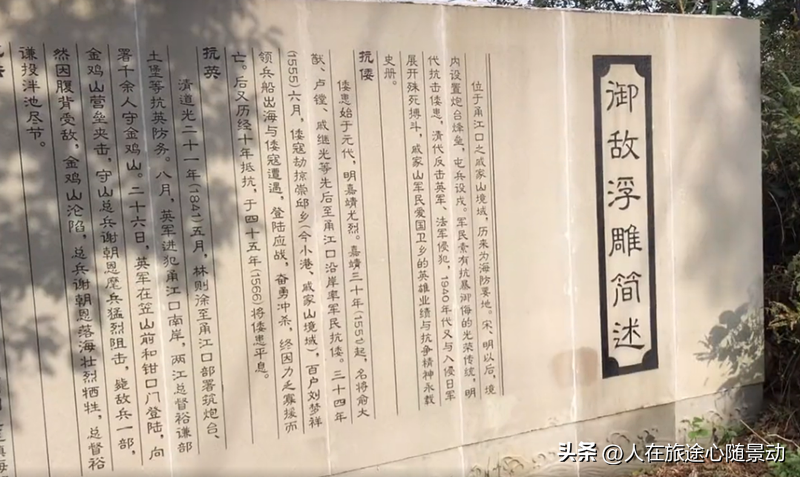 御敌浮雕简述
位于甬江口之戚家山境域,历来为海防要地。宋、明以后,境
内设置炮台烽垒,屯兵设戍。军民素有抗暴御侮的光荣传统,明
代抗击倭患,清代反击英军、法军侵犯,1940年代又与入侵日军
展开殊死搏斗,戚家山军民爱国卫乡的英雄业绩与抗争精神永载
史册。
抗倭
倭患始于元代,明嘉靖尤烈。嘉靖三十年(1551)起,名将俞大
猷、卢镗、戚继光等先后至甬江口沿岸率军民抗倭。三十四年
(1555)六月,倭寇劫掠崇邱乡(今小港、戚家山境域),百户刘梦祥
领兵船出海与倭寇遭遇,登陆应战,奋勇冲杀,终因力乏寡援而
亡。后又历经十年抵抗,于四十五年(1566)将倭患平息。
抗英
清道光二十一年(1841)五月,林则徐至甬江口部署筑炮台、
土堡等抗英防务。八月,英军进犯甬江口南岸,两江总督裕谦部
署千余人守金鸡山。二十六日,英军在笠山前和钳口门登陆,向
金鸡山营垒夹击,守山总兵谢朝恩麾兵猛烈阻击,毙敌兵一部,
然因腹背受敌,金鸡山沦陷,总兵谢朝恩落海壮烈牺牲,总督裕
谦投泮池尽节。
头条 @人在旅途心随景动